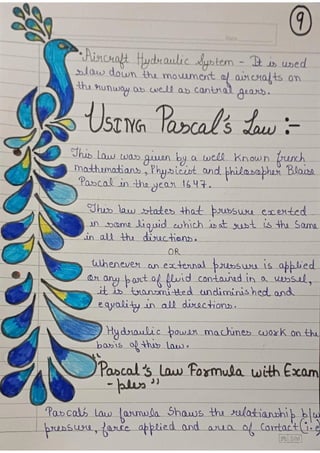 9
• Aircraft Hydraulic System - It is used
slow down the movement of aircrafts on
the runway as well as cantral gears.
USING Pascal's Law :-
This law was given by a well known french
mathematians, Physicist and philosapher Blaise
Pascal in the year 1647.
This law states that pressure exerted
in some liquid which isat rest is the same
in all the directions.
OR
Whenever an external pressure is applied
on any part of fluid contained in a vessel,
it is transmitted undiminished and
equality in all directions.
Hydraulic power machines work on the
basis of this law.
"Pascal's Law Formula with Exam
- ples"
Pascal's law farmula shaws the relatianship b/w
pressure, farce applied and area of cantact (i.e